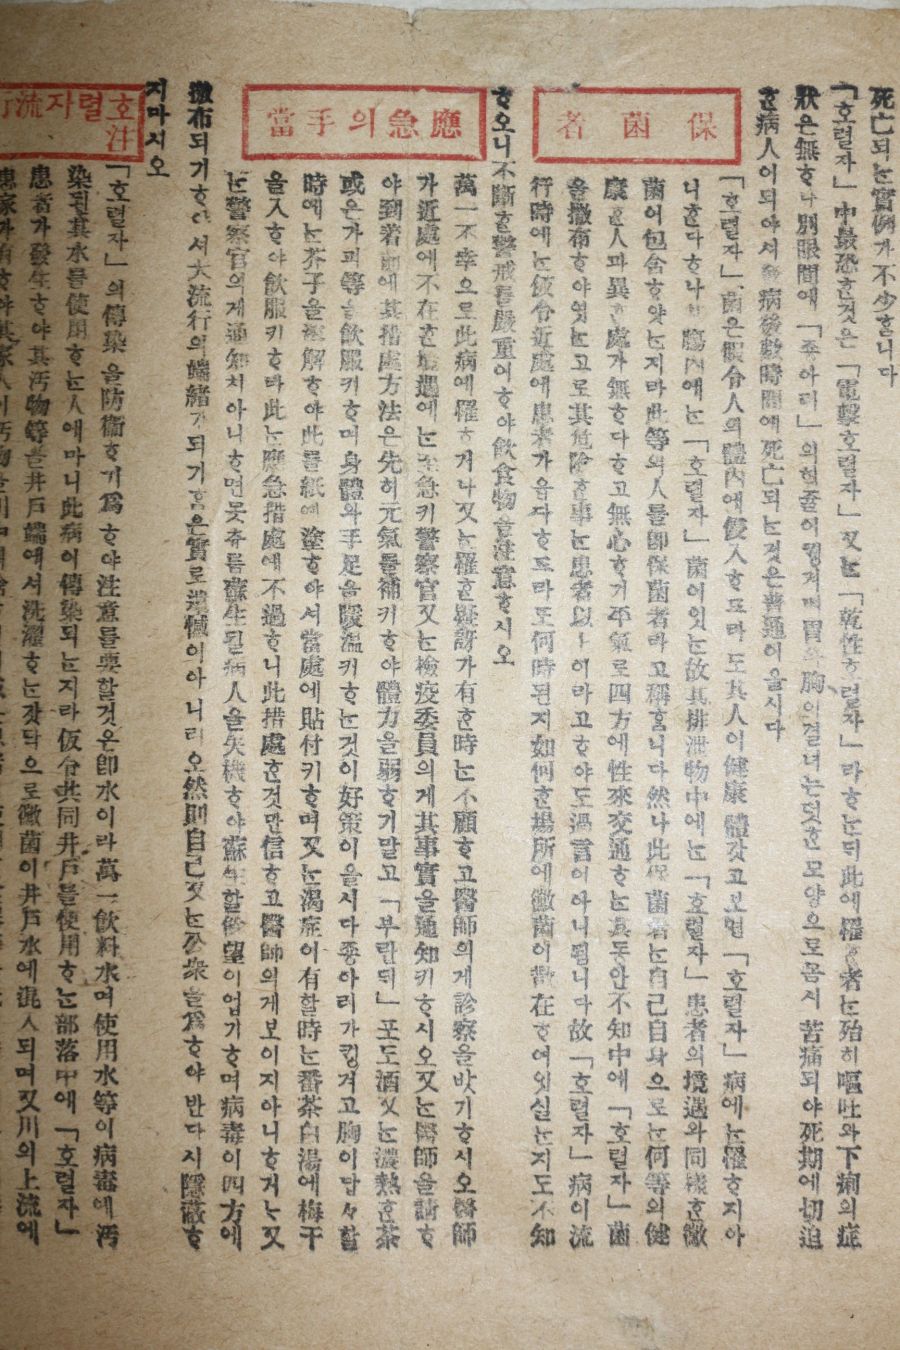 死亡되는實例가不少하니다
「호렬자」中最恐한것은「電擊호렬자」又는「乾性호렬자」라하는듸此에罹한者는殆히嘔吐와下痢의症
狀은無하나別眼間에「죵아리」의힘쥴이켱겨 胃와胸이결너는덧한모양으로곰시苦痛되야死期에切迫
한病人이되야셔發病後數時間에死亡되는것은普通이올시다
保菌者
「호렬자」菌은假令人의體內에侵入하드라도其人이健康體갓고보면「호렬자」病에는罹하지아
니한다하나 腸內에는「호렬자」菌이잇는故其排泄物中에는「호렬자」患者의境遇와同樣한黴
菌이包含하얏는지라此等의人를卽保菌者라고稱홈니다然나此保菌者는自己自身으로는何等의健
康한人과異한處가無하다하고無心하기平氣로四方에往來交通하는其동안不知中에「호렬자」菌
을撒布하야엿는고로其危險한事는患者以上이라고하야도過言이아니됨니다故「호렬자」病이流
行時에는假令近處에患者가읍다하드라도何時된지如何한場所에黴菌이散在하여잇실는지도不知
하오니不斷한警戒를嚴重이하야飮食物을注意하시오
應急의手當
萬一不幸으로此病에罹하거나又는罹한疑訝가有한時는不顧하고醫師의게診察을밧기하시오醫師
가近處에不在한境遇에는至急키警察官又는檢疫委員의게其事實을通知키하시오又는醫師을請하
야到着前에其措處方法은先히元氣를補키하야體力을弱하기말고「부란듸」포도酒又는濃熱한茶
或은가피等을飮服키하며身體와手足을暖溫키하는것이好策이올시다죵아리가켱겨고胸이답々할
時에는芥子을溶解하야此를紙에塗하야셔當處에貼付키하며又는渴症이有할時는番茶白湯에梅干
을入하야飮服키하라此는應急措處에不過하니此措處한것만信하고醫師의게보이지아니하거ᄂ又
는警察官의게通知치아니하면못츄름蘇生될病人을失機하야蘇生할餘望이업기하며病毒이四方에
撒布되기하야셔大流行의端緖가되기홈은實로遺憾이아니리오然則自己又는公衆을爲하야반다시隱蔽하
지마시오
호렬자流行
注
「호렬자」의傳染을防衛하기爲하야注意를要할것은卽水이라萬一飮料水며使用水等이病毒에汚
染된其水를使用하는人에마니此病이傳染되는지라仮令共同井戶를使用하는部落中에「호렬자」
患者가發生하야其汚物等을井戶端에셔洗濯하는갓닥으로黴菌이井戶水에混入되며又川의上流에
患家가有하야其家人이汚物을